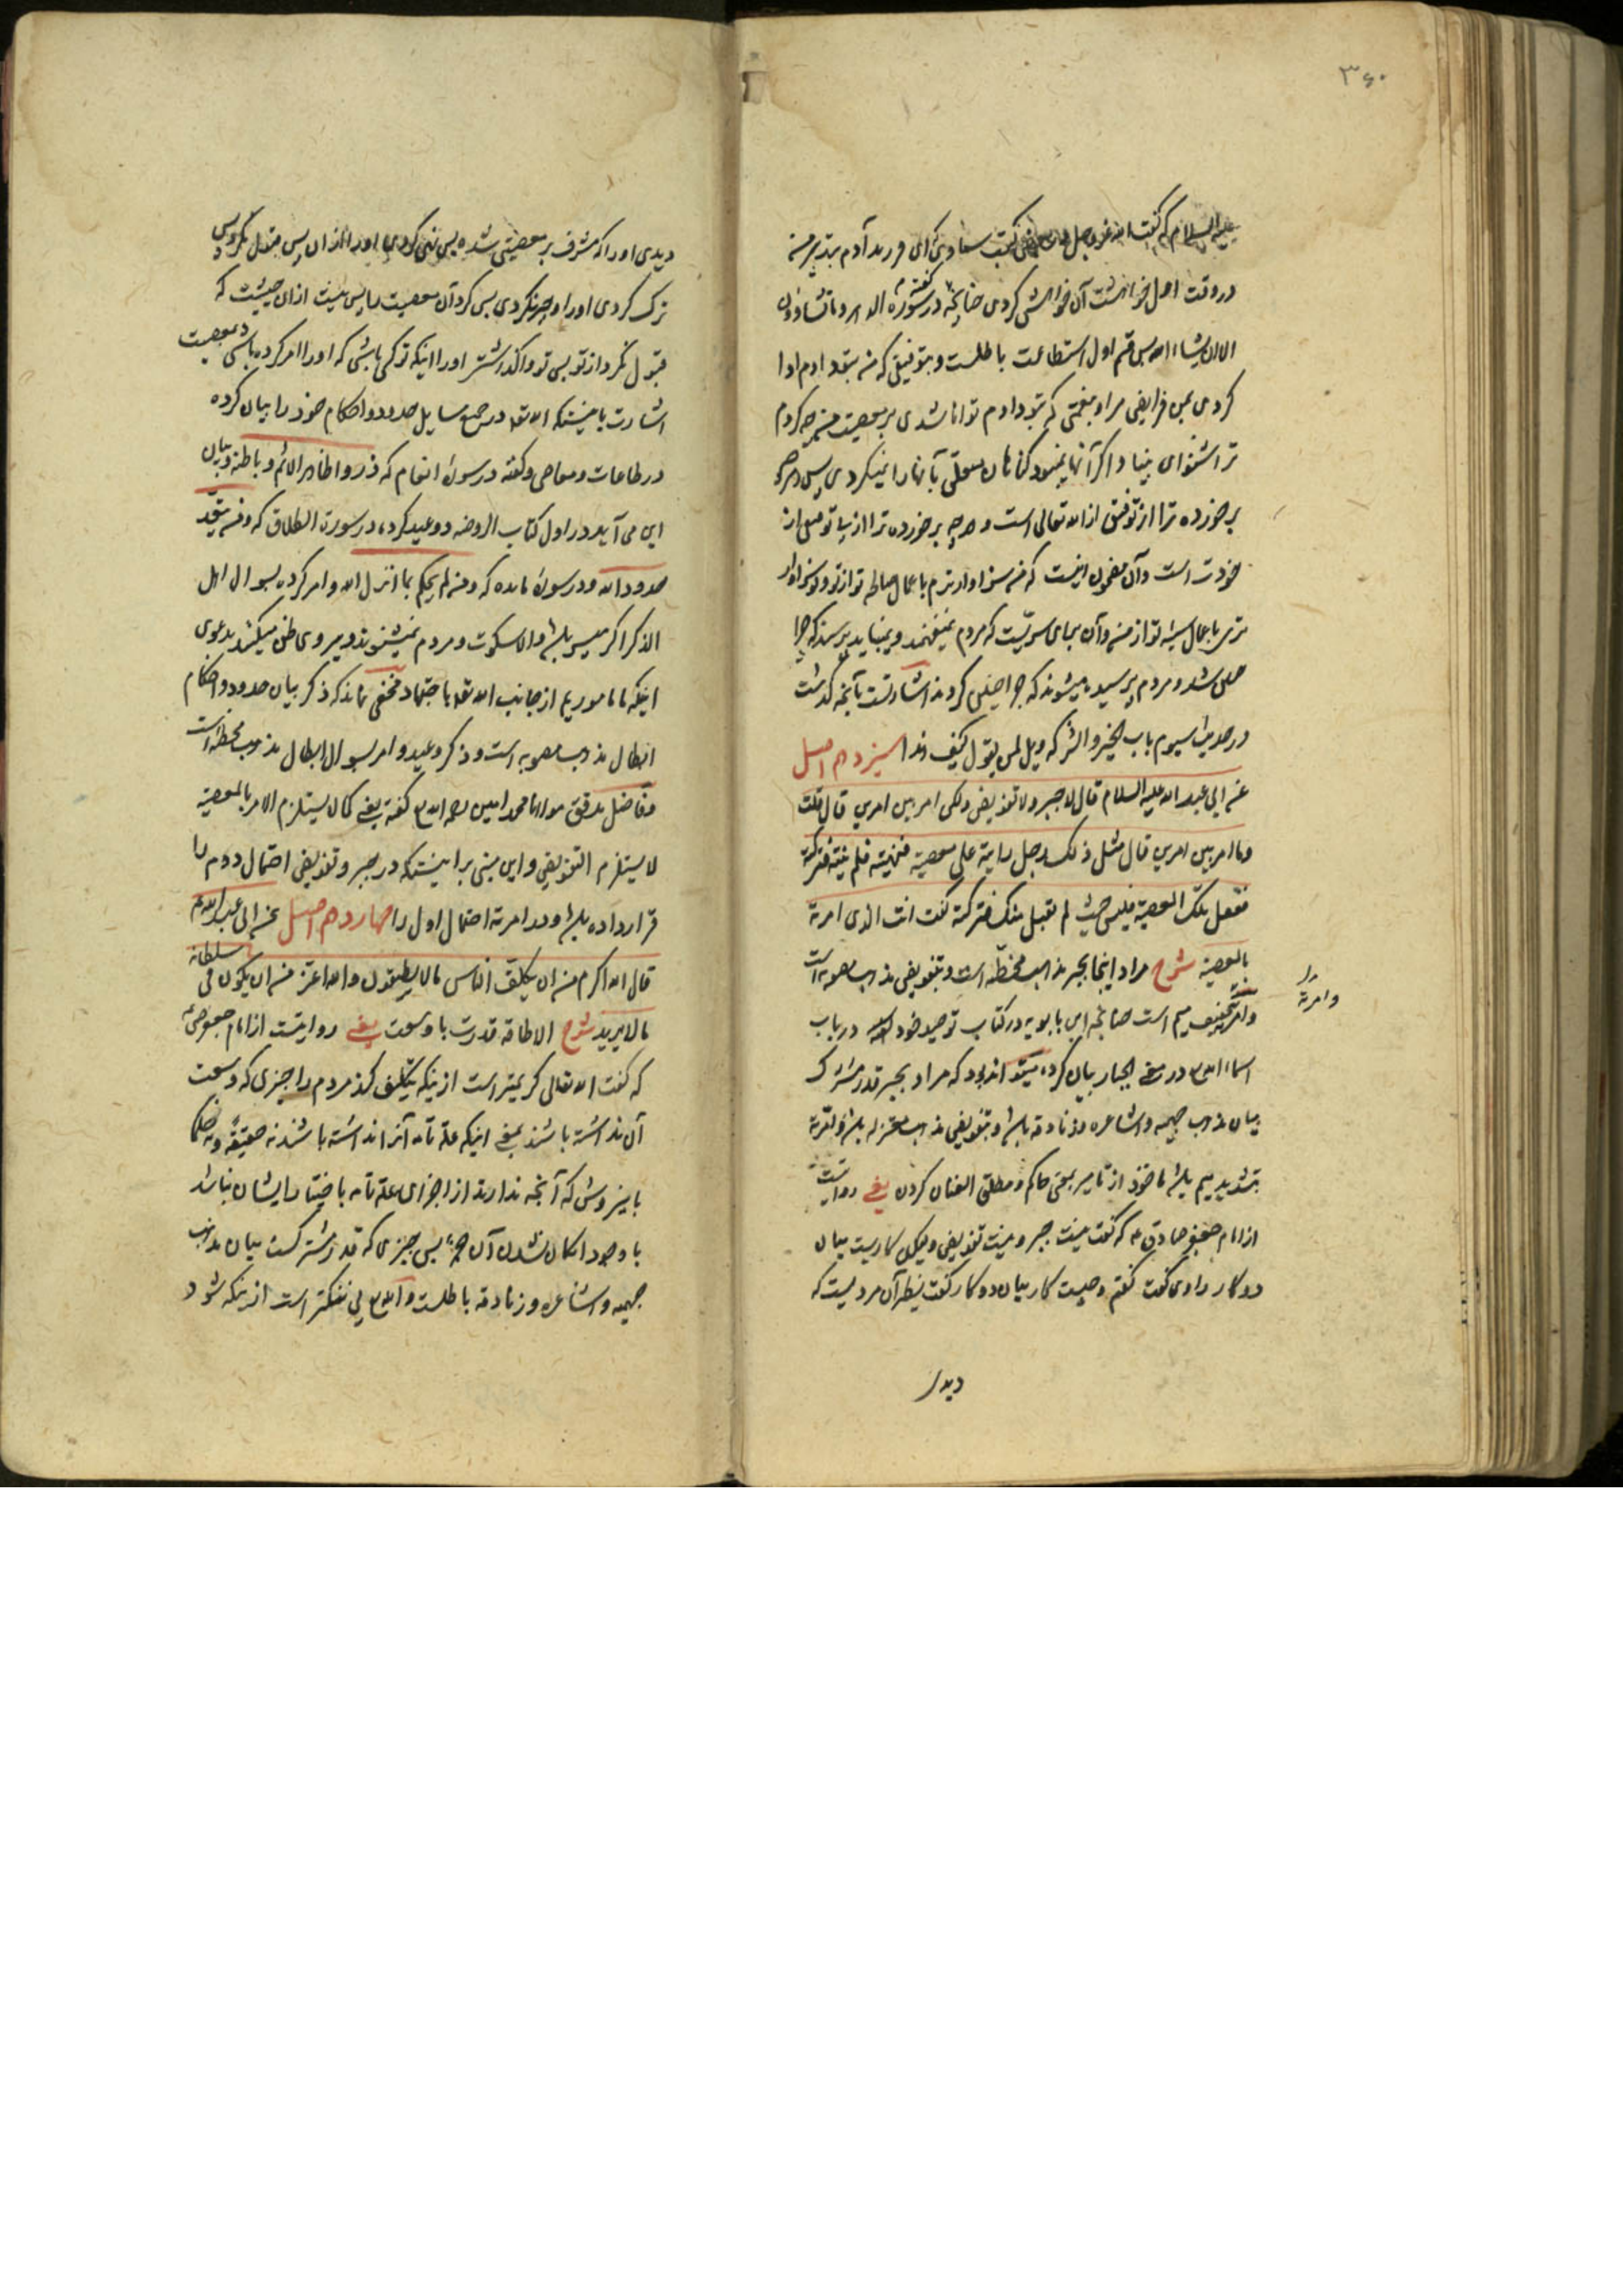 ۳۶۰
علیه السلام که گفت الله عزوجل در بعضی کتب سماوی که ای فرزند آدم بتدبیر من
در وقت اول خواهشت آن خواهش کردی چنانچه گفته در سورة الدهر وما تشاؤن
الا ان یشاء الله پس قسم اول استطاعت باطلست و بتوفیقی که من بتو دادم ادا
کردی بمن فرایض مرا و بنعمتی که بتو دادم توانا شدی بر معصیت من چه کردم
ترا شنوای بینا و اگر آنها نمیبود گناهان متعلق بآنها را نمیکردی پس هر چه
برخورده ترا از توفیق از الله تعالی است و هر چه برخورده ترا از بد تو پس از
خودت است و آن مضمون اینست که من سزاوارترم باعمال صالحه تو از تو و تو سزاوار
تری باعمال سیئه تو از من و آن برای سریست که مردم نمیفهمند و نمیباید پرسند که چرا
خلق شد و مردم پرسیده میشوند که چرا چنین کردند اشارتست بآنچه گذشت
در حدیث سیوم باب الخیر والشر که ویل لمن یقول کیف ذا سیزدهم اصل
عن ابی عبد الله علیه السلام قال لا جبر ولا تفویض ولکن امر بین امرین قال قلت
وما امر بین امرین قال مثل ذلک رجل رایته علی معصیة فنهیته فلم ینته فترکته
ففعل تلک المعصیة فلیس حیث لم یقبل منک فترکته کنت انت الذی امرته
بالمعصیة شرح مراد اینجا بجبر مذهب مخطئه است و بتفویض مذهب مصوبه است
وامرته بتخفیف میم است چنانچه ابن بابویه در کتاب توحید خود در باب
اسماء الله در معنی الجبار بیان کرده میتواند بود که مراد بجبر قدر مشترک
میان مذهب جهمیه و اشاعره و زنادقه باشد و بتفویض مذهب معتزله باشد و امرته
بتشدید میم باشد ماخوذ از تامیر بمعنی حاکم و مطلق العنان کردن یعنی روایتست
از امام جعفر صادق ع که گفت نیست جبر و نیست تفویض ولیکن کاریست میان
دو کار راوی گفت گفتم و چیست کار میان دو کار گفت نظیر آن مردیست که
وامرته
دیدی
دیدی او را که مشرف بر معصیتی شده پس نهی کردی او را از ان پس قبول نکرد پس
ترک کردی او را و جبر نکردی پس کرد آن معصیت را پس نیست ازان حیثیت که
قبول نکرد از تو پس تو واگذاشتی او را اینکه تو کسی باشی که او را امر کرده باشی بمعصیت
اشارت باینستکه الله تعه در جمیع مسایل حدود و احکام خود را بیان کرده
در طاعات و معاصی و گفته در سورة انعام که ذروا ظاهر الاثم وباطنه و بیان
این می آید در اول کتاب الروضه و وعید کرده در سورة الطلاق که ومن یتعد
حدود الله و در سورة مایده که ومن لم یحکم بما انزل الله و امر کرده بسوال اهل
الذکر اگر میسر باشد والا سکوت و مردم نمیشنوند و پیروی ظن میکنند بدعوی
اینکه ما ماموریم از جانب الله تعه باجتهاد مخفی نماند که ذکر بیان حدود و احکام
ابطال مذهب مصوبه است و ذکر وعید و امر بسوال ابطال مذهب مخطئه است
و فاضل مدقق مولانا محمد امین رحمه الله گفته یعنی کما لا یستلزم الامر بالمعصیة
لا یستلزم التفویض و این مبنی بر اینستکه در جبر و تفویض احتمال دوم را
قرار داده باشد و در امرته احتمال اول را چهاردهم اصل عن ابی عبد الله ع
قال الله اکرم من ان یکلف الناس ما لا یطیقون والله اعز من ان یکون فی سلطانه
ما لا یرید شرح الاطاقه قدرت با وسعت یعنی روایتست از امام جعفر صادق ع
که گفت الله تعالی کریمتر است از اینکه تکلیف کند مردم را چیزی که وسعت
آن نداشته باشند بمعنی اینکه علة تامه آنرا نداشته باشند نه حقیقة و نه حکما
باینروش که آنچه ندارند از اجزای علة تامه باختیار ایشان نباشد
با وجود امکان شدن آن پس چیزی که قدر مشترکست میان مذهب
جهمیه و اشاعره و زنادقه باطلست و الله بی ننگتر است از اینکه شود